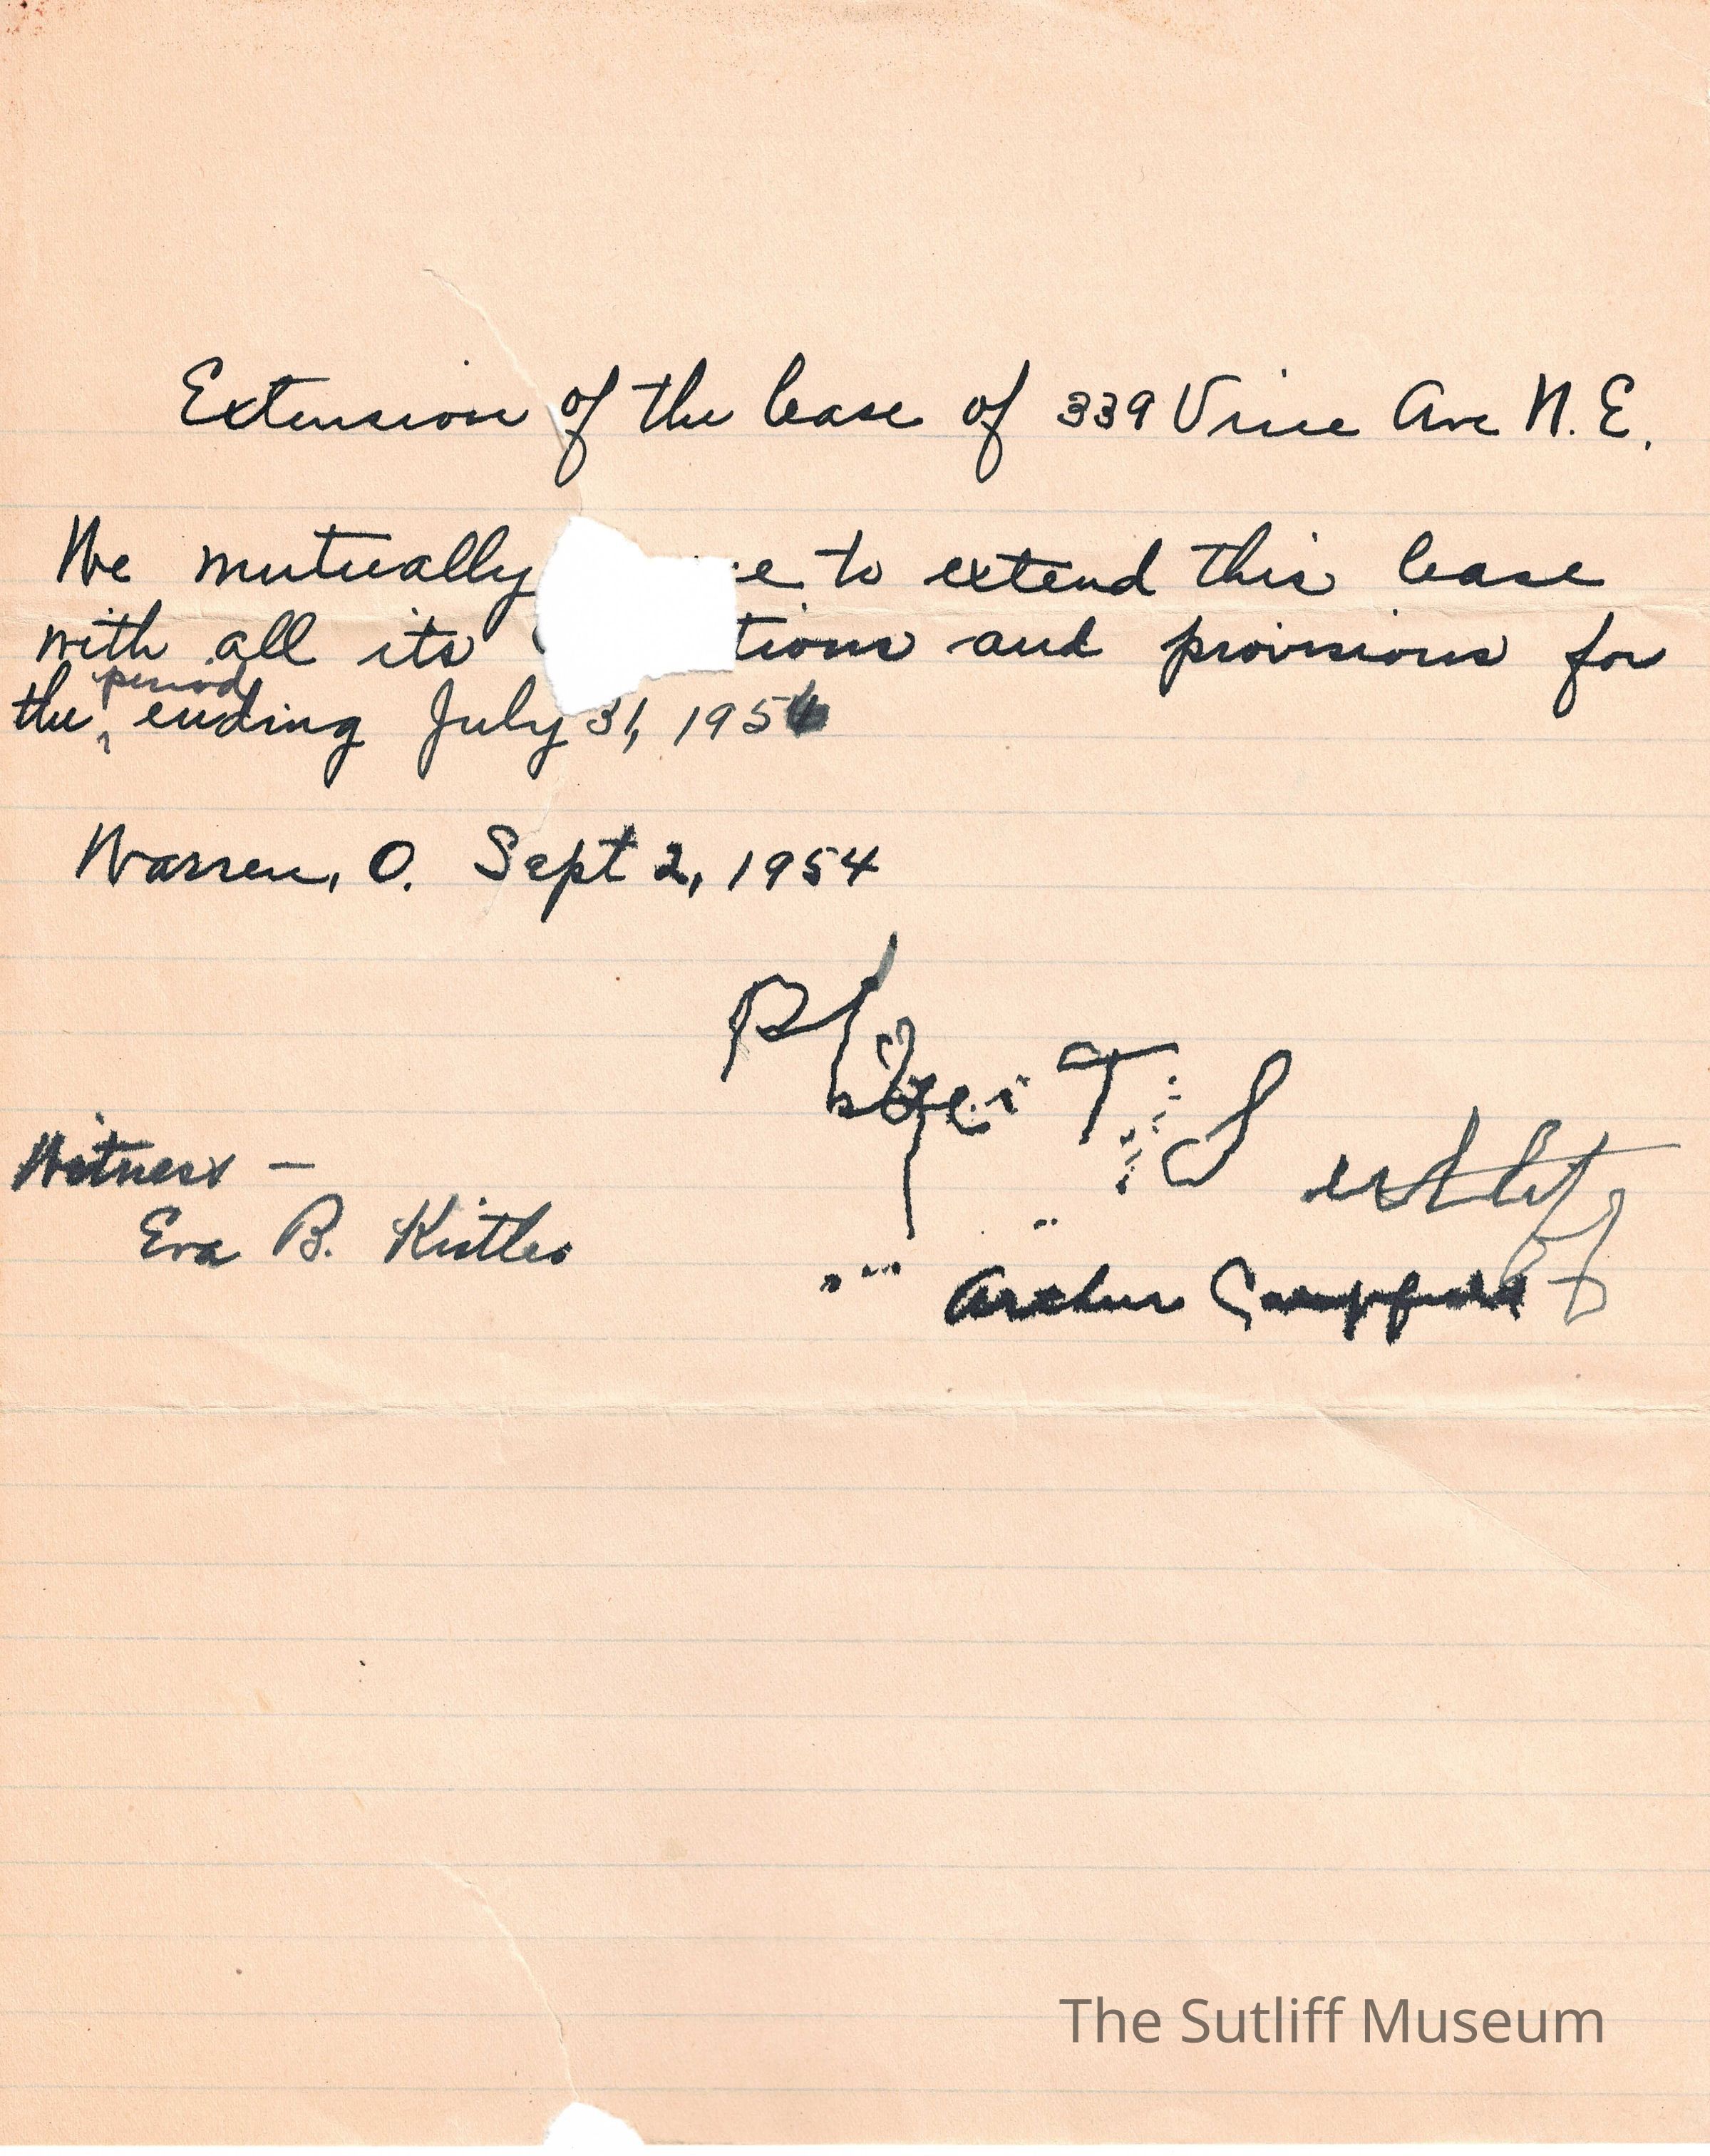 Extension of the lease of 339 Vine Ave N.E.
We mutually e to extend this lease
with all its tions and provisions for
period
the ending July 31, 195
Warren, O. Sept 2, 1954
T. S
Witness —
Eva B. Kistler
Arthur
The Sutliff Museum